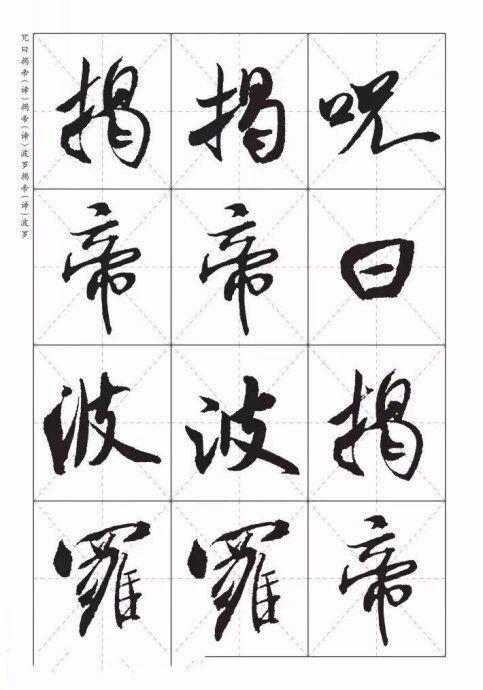 呪曰揭帝
揭帝波羅
揭帝波羅
咒曰揭帝（谛）揭帝（谛）波罗揭帝（谛）波罗